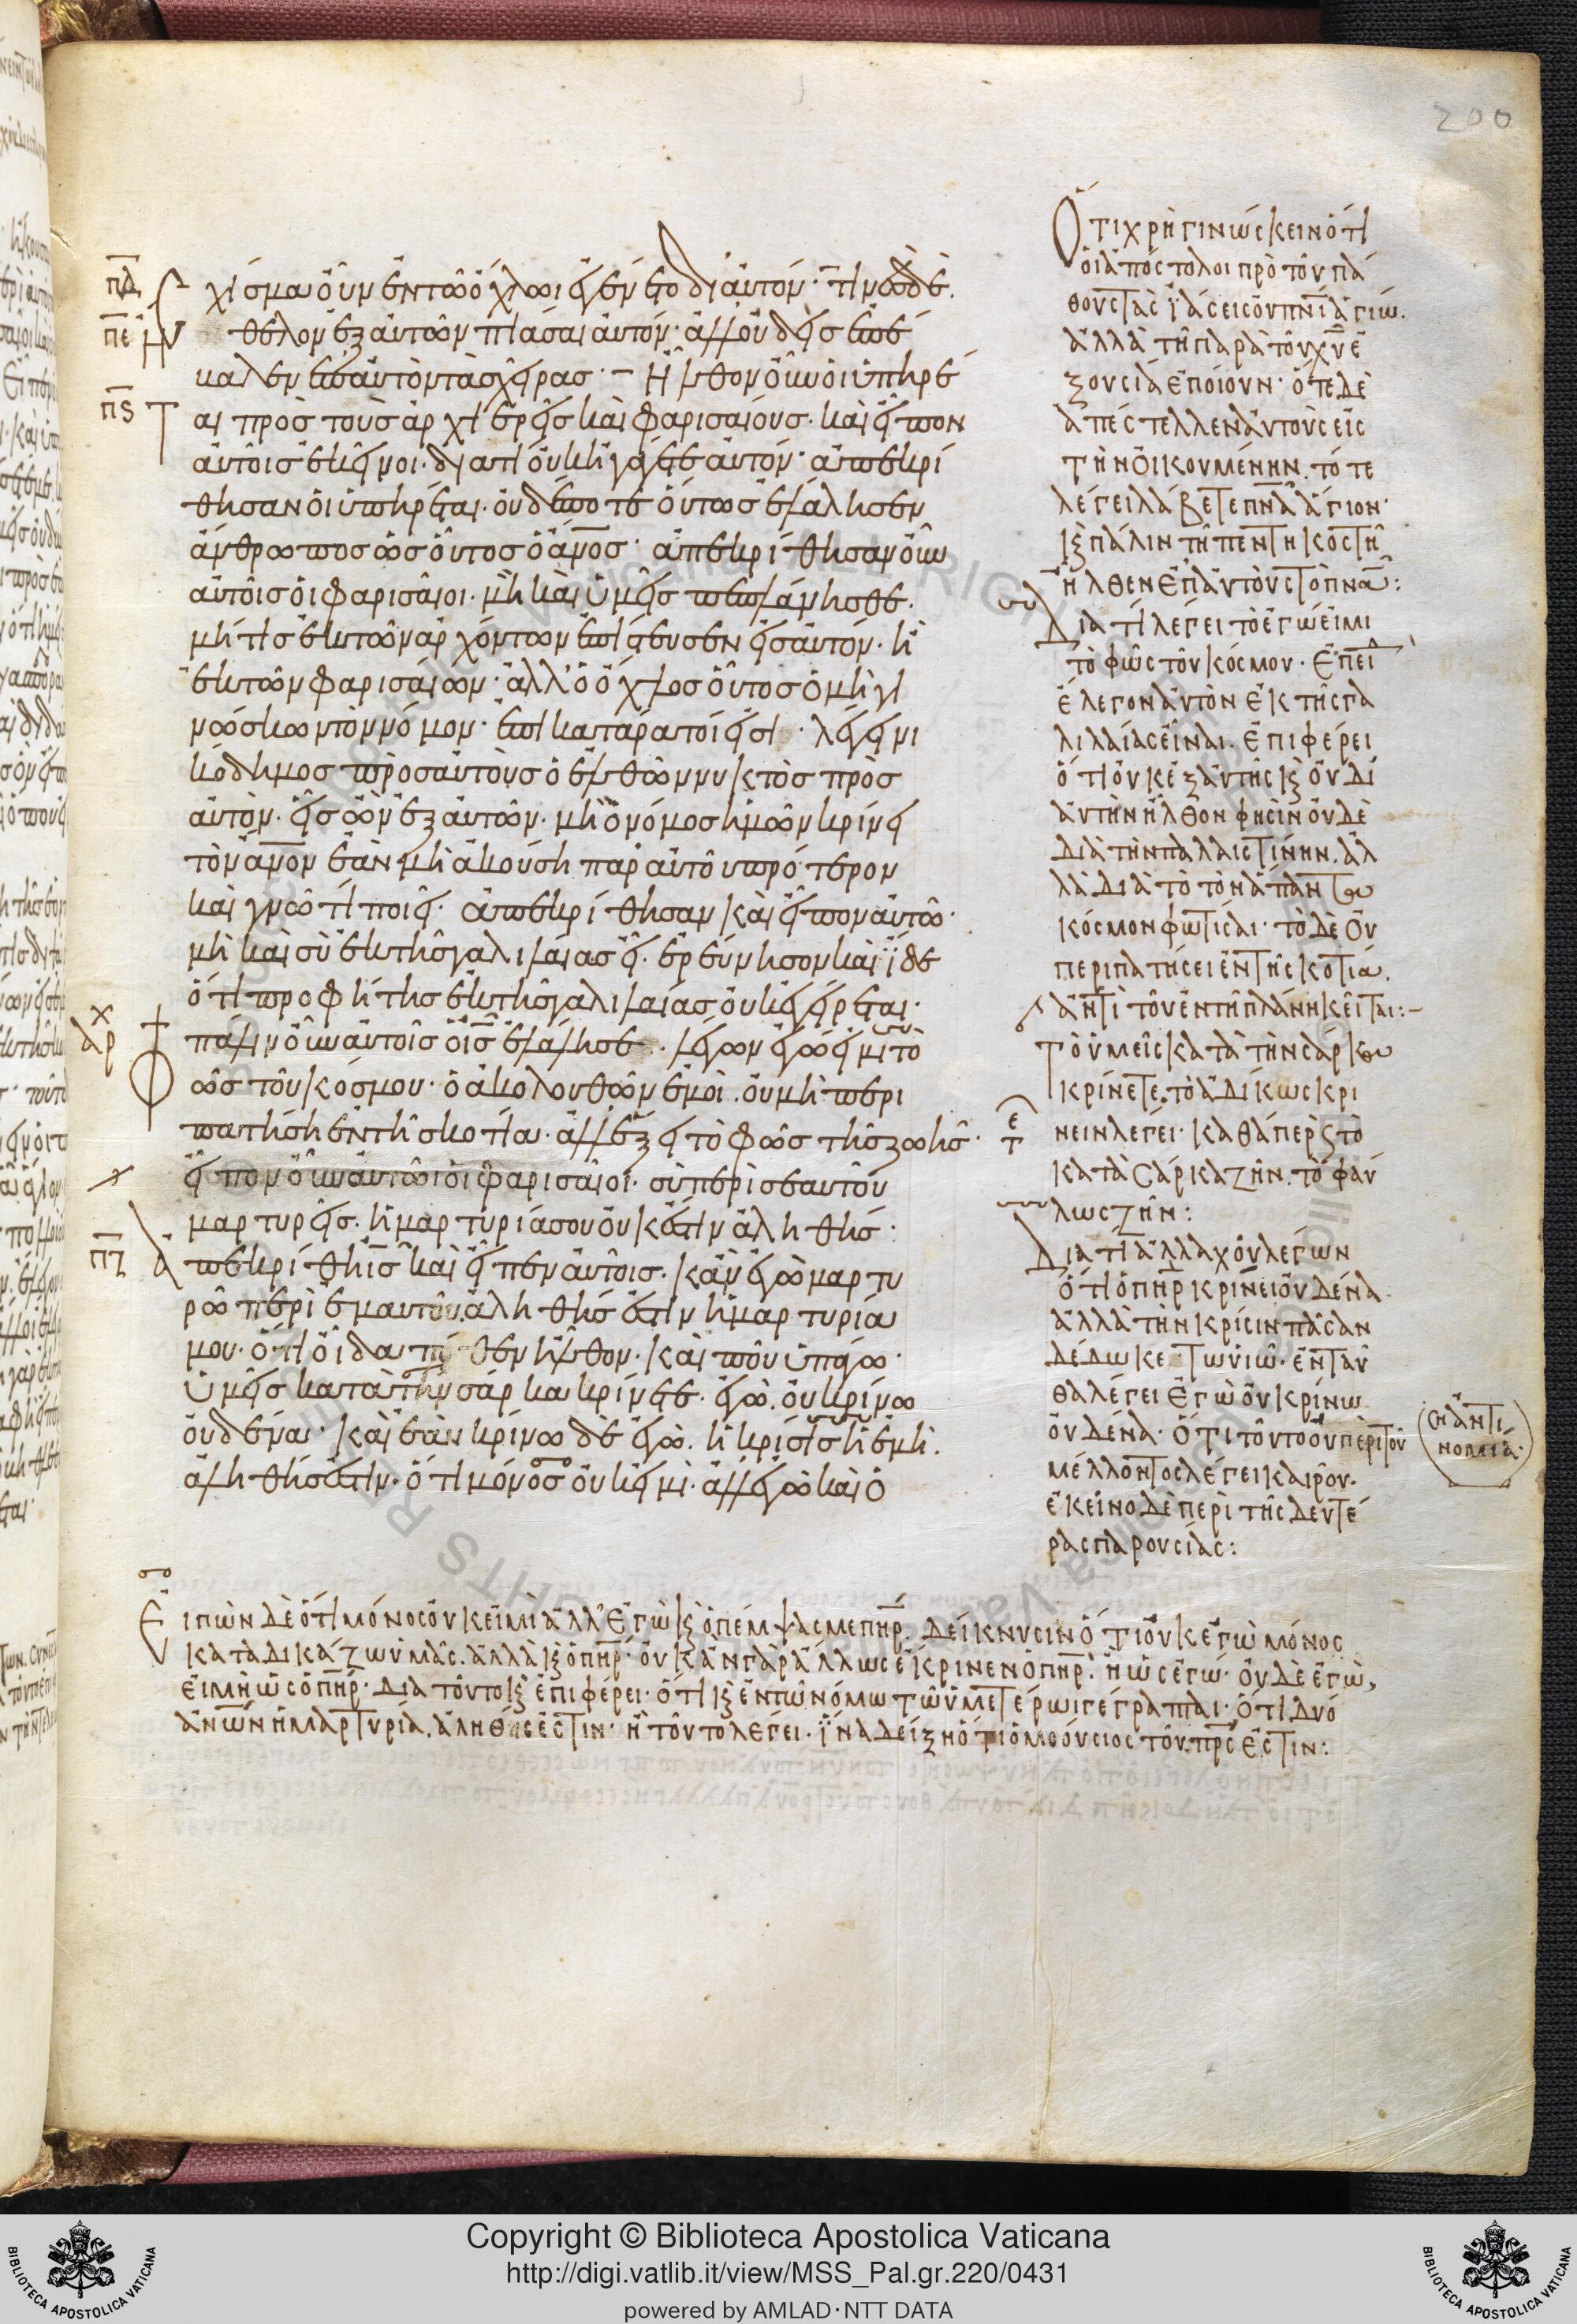 200
πδ
σχίσμα οὖν ἐν τῶ ὄχλωι ἐγένετο δι αὐτόν· τινὲς δὲ
πε
ἤθελον ἐξ αὐτῶν πιάσαι αὐτόν· ἀλλ οὐδεὶς ἐπέ
βαλεν ἐπ αὐτὸν τὰς χεῖρας· – Ἦλθον οὖν οἱ ὑπηρέ
πϛ
ται πρὸς τοὺς ἀρχιερεῖς καὶ φαρισαίους· καὶ εἶπον
αὐτοῖς ἐκεῖνοι· διατί οὐκ ἠγάγετε αὐτόν· ἀπεκρί
θησαν οἱ ὑπηρέται· οὐδέποτε οὕτως ἐλάλησεν
ἄνθρωπος ὡς οὗτος ὁ ἄνος· ἀπεκρίθησαν οὖν
αὐτοῖς οἱ φαρισαῖοι· μὴ καὶ ὑμεῖς πεπλάνησθε·
μήτις ἐκ τῶν ἀρχόντων ἐπίστευσεν εἰς αὐτόν· ἢ
ἐκ τῶν φαρισαίων· ἀλλ' ὁ ὄχλος οὗτος ὁ μὴ γι
νώσκων τὸν νόμον· ἐπικατάρατοί εἰσι· λέγει νι
κόδημος πρὸς αὐτοὺς ὁ ἐλθὼν νυκτὸς πρὸς
αὐτὸν· εἷς ὢν ἐξ αὐτῶν· μὴ ὁ νόμος ἡμῶν κρίνει
τὸν ἄνον ἐὰν μὴ ἀκούσῃ παρ αὐτοῦ πρότερον
καὶ γνῶ τί ποιεῖ· ἀπεκρίθησαν καὶ εἶπον αὐτῶ·
μὴ καὶ σὺ ἐκ τῆς γαλιλαίας εἶ· ἐρεύνησον καὶ ἴδε
ὅτι προφήτης ἐκ τῆς γαλιλαίας οὐκ ἐγείρεται·
αρχ
πάλιν οὖν αὐτοῖς ὁ ις ἐλάλησε· λέγων ἐγώ εἰμι τὸ
φῶς τοῦ κόσμου· ὁ ἀκολουθῶν ἐμοὶ· οὐ μὴ περι
πατήσῃ ἐν τῆ σκοτία· ἀλλ ἕξει τὸ φῶς τῆς ζωῆς·
ετ
εἶπον οὖν αὐτῶι οἱ φαρισαῖοι· σὺ περὶ σεαυτοῦ
μαρτυρεῖς· ἡ μαρτυρία σου οὐκ ἔστιν ἀληθής:
πζ
ἀπεκρίθη ις καὶ εἶπεν αὐτοῖς· κἂν ἐγὼ μαρτυ
ρῶ περὶ ἐμαυτοῦ· ἀληθής ἐστιν ἡ μαρτυρία
μου· ὅτι οἶδα πόθεν ἦλθον· καὶ ποῦ ὑπάγω·
ὑμεῖς κατὰ τὴν σάρκα κρίνετε· ἐγὼ οὐ κρίνω
οὐδένα· καὶ ἐὰν κρίνω δὲ ἐγὼ· ἡ κρίσις ἡ ἐμὴ·
ἀληθής ἐστιν· ὅτι μόνος οὐκ εἰμὶ· ἀλλ ἐγὼ καὶ ὁ
Ὅτι χρὴ γινώσκειν ὅτι
οἱ ἀπόστολοι πρὸ τοῦ πά
θους τὰς ἰάσεις οὐ πνι ἁγίω·
ἀλλὰ τῆ παρὰ τοῦ χυ ἐ
ξουσία ἐποίουν· ὅτε δὲ
ἀπέστελλεν αὐτοὺς εἰς
τὴν οἰκουμένην· τότε
λέγει λάβετε πνα ἅγιον·
κ πάλιν τῆ πεντηκοστῆ
ἦλθεν ἐπ αὐτοὺς τὸ πνα:
Διατί λέγει τὸ ἐγώ εἰμι
τὸ φῶς τοῦ κόσμου· Ἐπειδ
ἔλεγον αὐτὸν ἐκ τῆς γα
λιλαίας εἶναι· ἐπιφέρει
ὅτι οὐκ ἐξ αὐτῆς κ οὐ δι
αὐτὴν ἦλθον φησὶν οὐδὲ
διὰ τὴν παλαιστίνην· ἀλ
λὰ διὰ τὸ τὸν ἅπαντα
κόσμον φωτίσαι· τὸ δὲ οὐ
περιπατήσει ἐν τῆ σκοτία·
ἀντὶ τοῦ ἐν τῆ πλάνη κεῖται:–
Τὸ ὑμεῖς κατὰ τὴν σάρκα
κρίνετε· τὸ ἀδίκως κρί
νειν λέγει· καθάπερ τὸ
κατὰ σάρκα ζῆν· τὸ φαύ
λως ζῆν:
Διατί ἀλλαχοῦ λέγων
ὅτι ὁ πηρ κρίνει οὐδένα
ἀλλὰ τὴν κρίσιν πᾶσαν
δέδωκε τῶ υἱῶ· ἐνταῦ
θα λέγει ἐγὼ οὐ κρίνω
οὐδένα· ὅτι τοῦτο οὐ περὶ τοῦ
μέλλοντος λέγει καιροῦ·
ἐκεῖνο δὲ περὶ τῆς δευτέ
ρας παρουσίας:
ση ἀντι
νομία·
Εἰπὼν δὲ ὅτι μόνος οὐκ εἰμὶ ἀλλ' ἐγὼ κ ὁ πέμψας με πηρ· δείκνυσιν ὅτι οὐκ ἐγὼ μόνος
καταδικάζω ὑμᾶς· ἀλλὰ κ ὁ πηρ· οὐκ ἂν γὰρ ἄλλως ἔκρινεν ὁ πηρ· ἢ ὡς ἐγώ· οὐδὲ ἐγὼ,
εἰ μὴ ὡς ὁ πηρ· διὰ τοῦτο κ ἐπιφέρει· ὅτι κ ἐν τῶ νόμω τῶ ὑμετέρωι γέγραπται· ὅτι δύο
ἀνων ἡ μαρτυρία ἀληθής ἐστιν· ἢ τοῦτο λέγει· ἵνα δείξη ὅτι ὁμοούσιος τοῦ πρς ἐστιν:
Copyright © Biblioteca Apostolica Vaticana
http://digi.vatlib.it/view/MSS_Pal.gr.220/0431
powered by AMLAD·NTT DATA
BIBLIOTECA APOSTOLICA VATICANA
BIBLIOTECA APOSTOLICA VATICANA